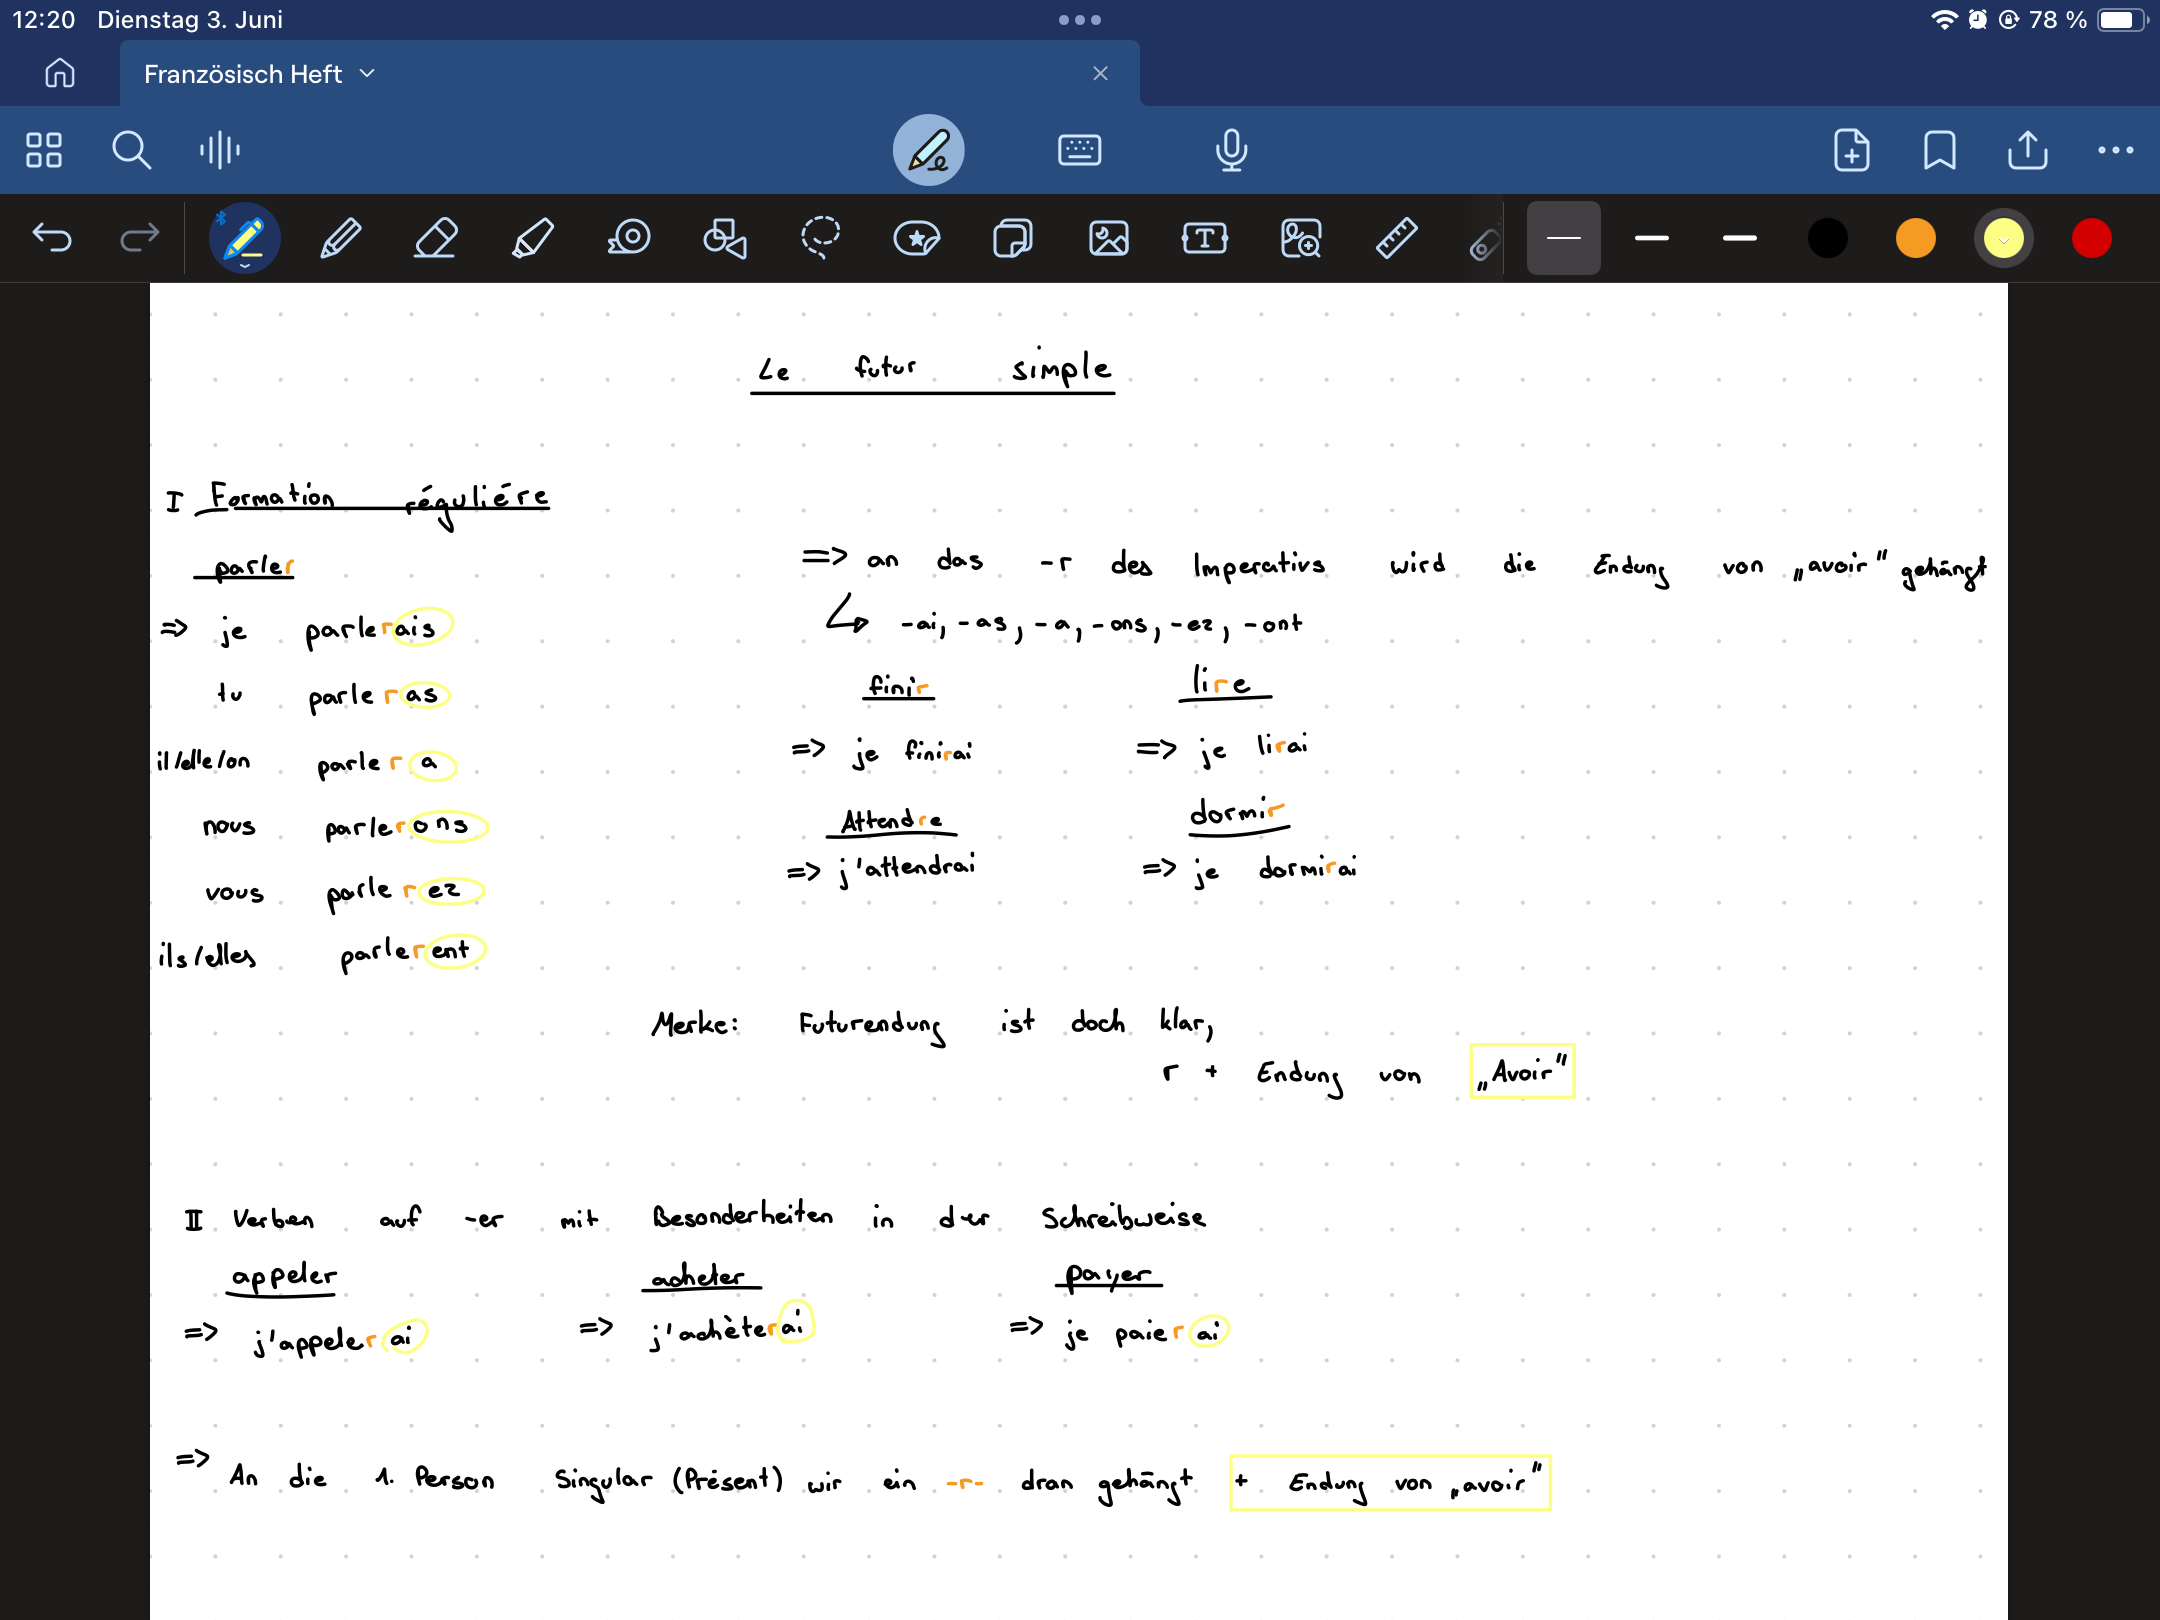 12:20 Dienstag 3. Juni 78 %
Französisch Heft
Le futur simple
I Formation réguliére
parler
=> je parlerais
tu parleras
il/elle/on parlera
nous parlerons
vous parlerez
ils/elles parlerent
=> an das -r des Imperativs wird die Endung von „avoir" gehängt
-ai, -as, -a, -ons, -ez, -ont
finir lire
=> je finirai => je lirai
Attendre dormir
=> j'attendrai => je dormirai
Merke: Futurendung ist doch klar,
r + Endung von „Avoir"
II Verben auf -er mit Besonderheiten in der Schreibweise
appeler acheter payer
=> j'appelerai => j'achèterai => je paierai
=> An die 1. Person Singular (Présent) wir ein -r- dran gehängt + Endung von „avoir"